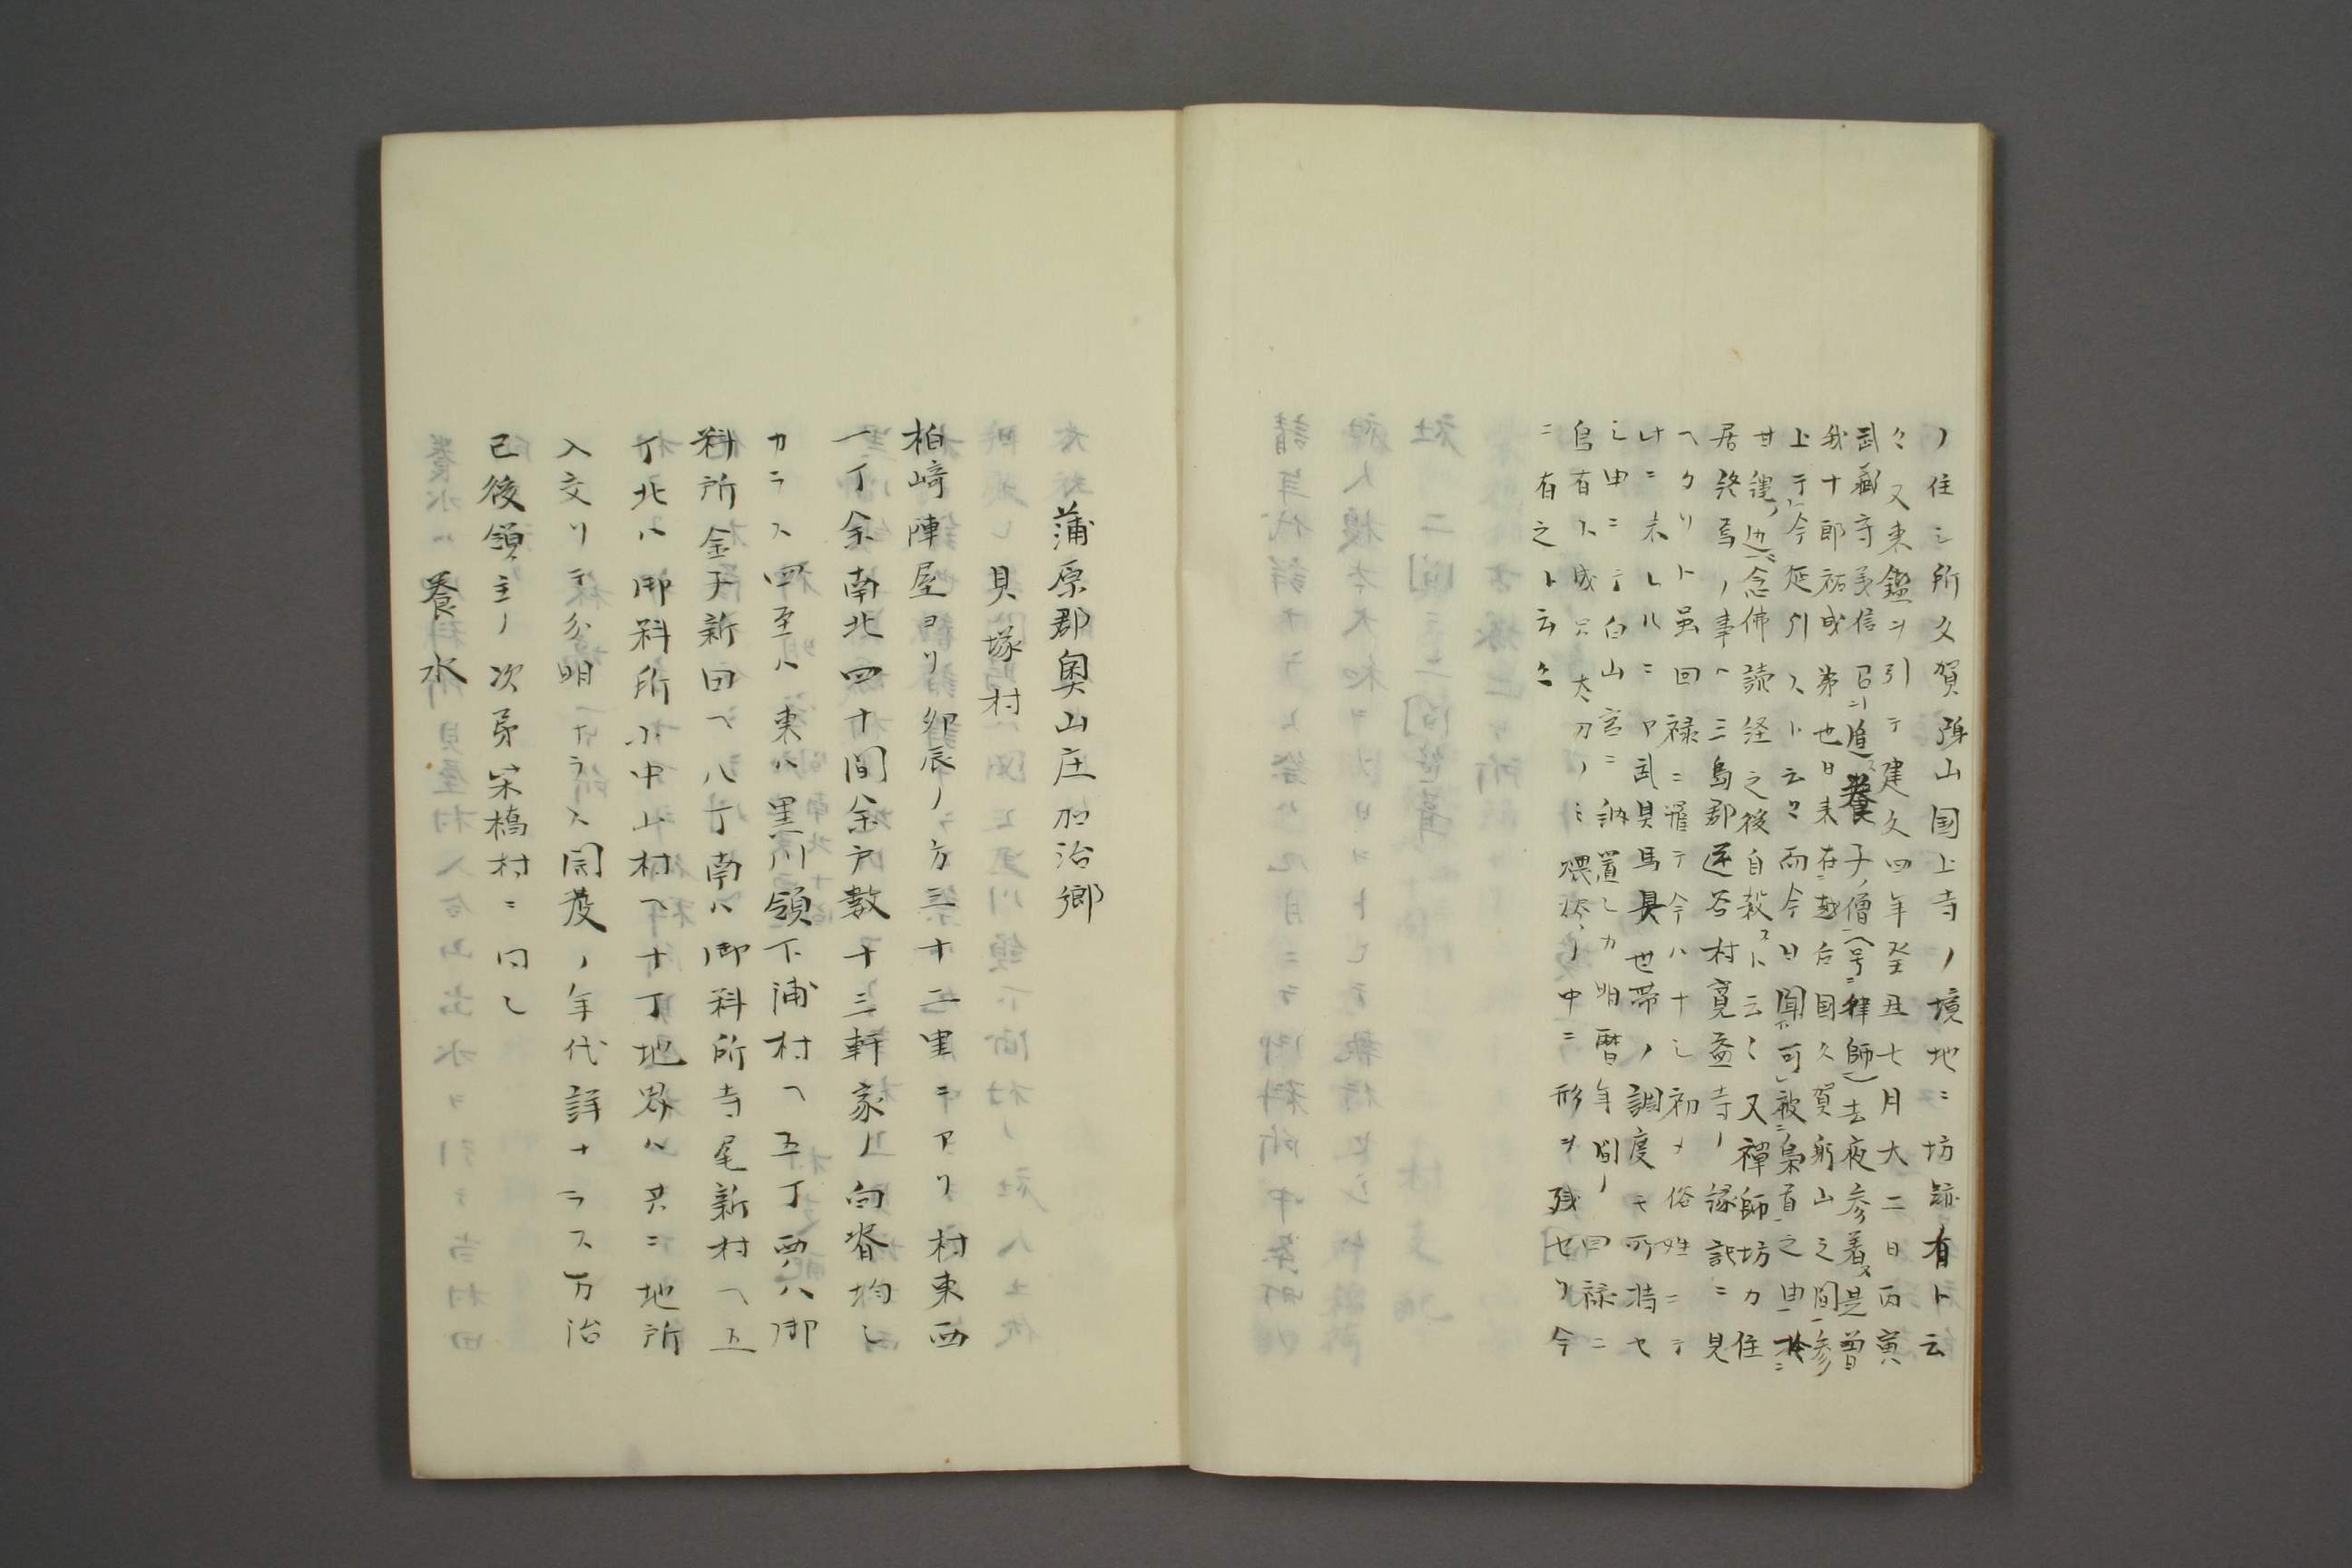 ノ住シ所久賀弥山国上寺ノ境地ニ坊跡有ト云
々又東鑑ヲ引テ建久四年癸丑七月大二日丙寅
武蔵守義信召ニ追養子ノ僧(号律師)去夜参着ス是曽
我十郎祐成弟也日来在越后国久賀躬山之間参
上于今延引スト云々而今日聞可被梟首之由於
甘縄辺念佛読経之後自殺スト云々又禅師坊カ住
居終焉ノ事ハ三島郡逆谷村寛益寺ノ縁記ニ見
ヘタリト虽回禄ニ罹テ今ハ十シ初メ俗姓ニテ
ケニ来レルニヤ武具馬具世帯ノ調度モ所持セ
シ由ニテ白山宮ニ納置シカ明暦年間ノ回禄ニ
烏有ス成只太刀ノミ燼ノ中ニ形ヲ残セリ今
ニ有之ト云々
蒲原郡奥山庄加治郷
貝塚村
柏﨑陣屋ヨリ卯辰ノ方三十二里ニアリ村東西
一丁余南北四十間余戸数十三軒家ノ向背均シ
カラス四至ハ東ハ黒川領下浦村ヘ五丁西ハ御
料所金子新田ヘ八丁南ハ御料所寺尾新村ヘ五
丁北ハ御料所小中山村ヘ十丁地界ハ共ニ地所
入交リテ分明ナラス開発ノ年代詳ナラス万治
已後領主ノ次第栄橋村ニ同シ
養水